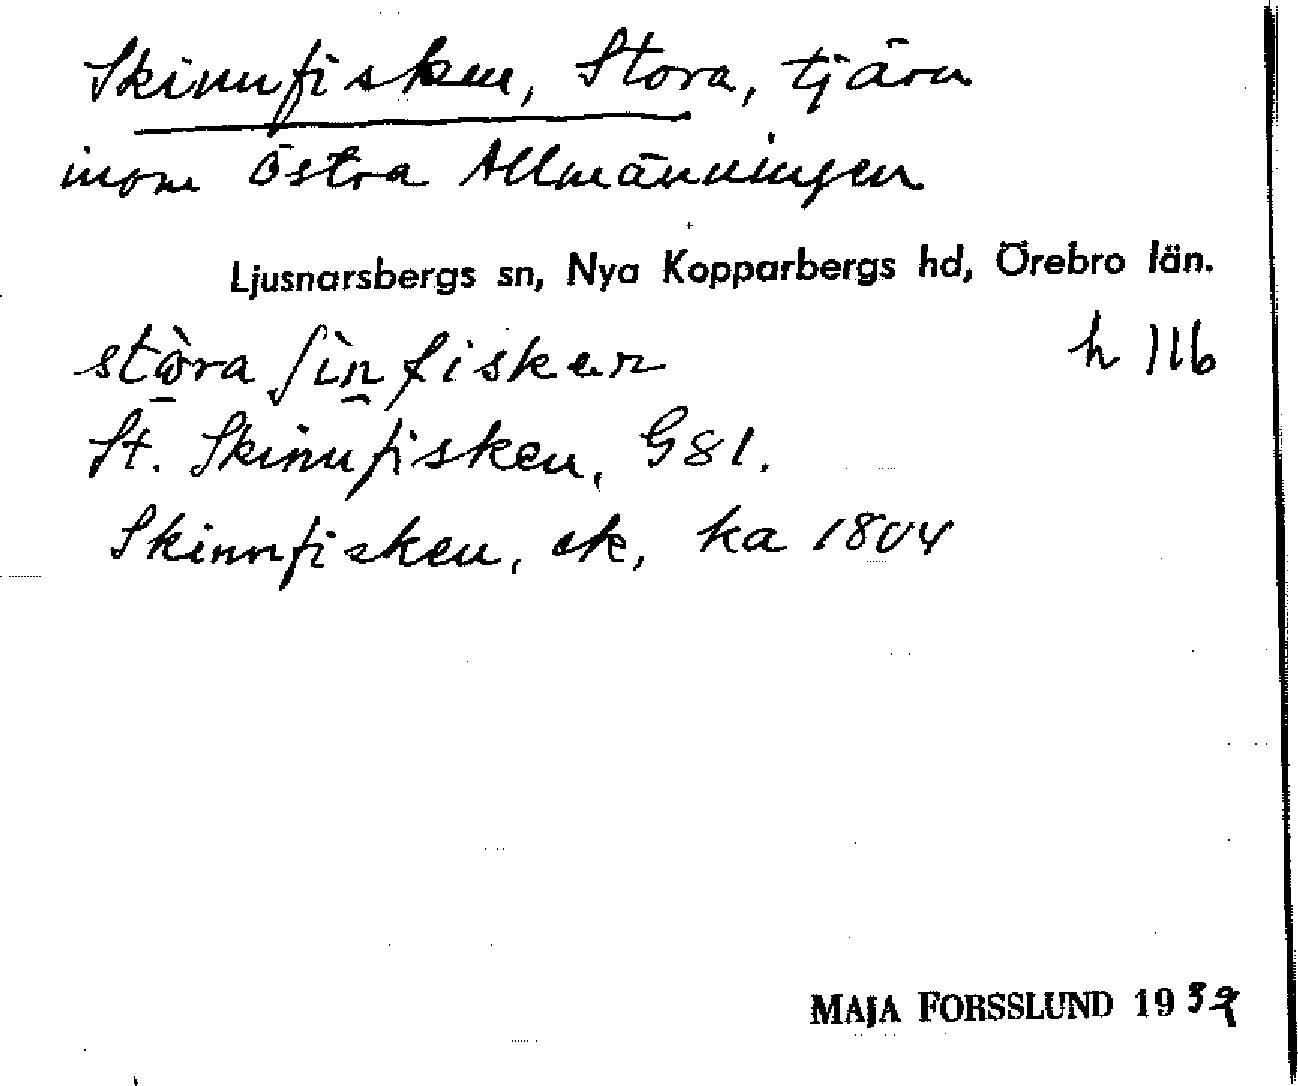 Skinnfisken, Stora, tjärn
inom Östra Allmänningen
Ljusnarsbergs sn, Nya Kopparbergs hd, Örebro län.
stὼ̲ra ʃìn̲fiskαn h 116
St. Skinnfisken, G81.
Skinnfisken, ek, ka 1804
MAJA FORSSLUND 1939